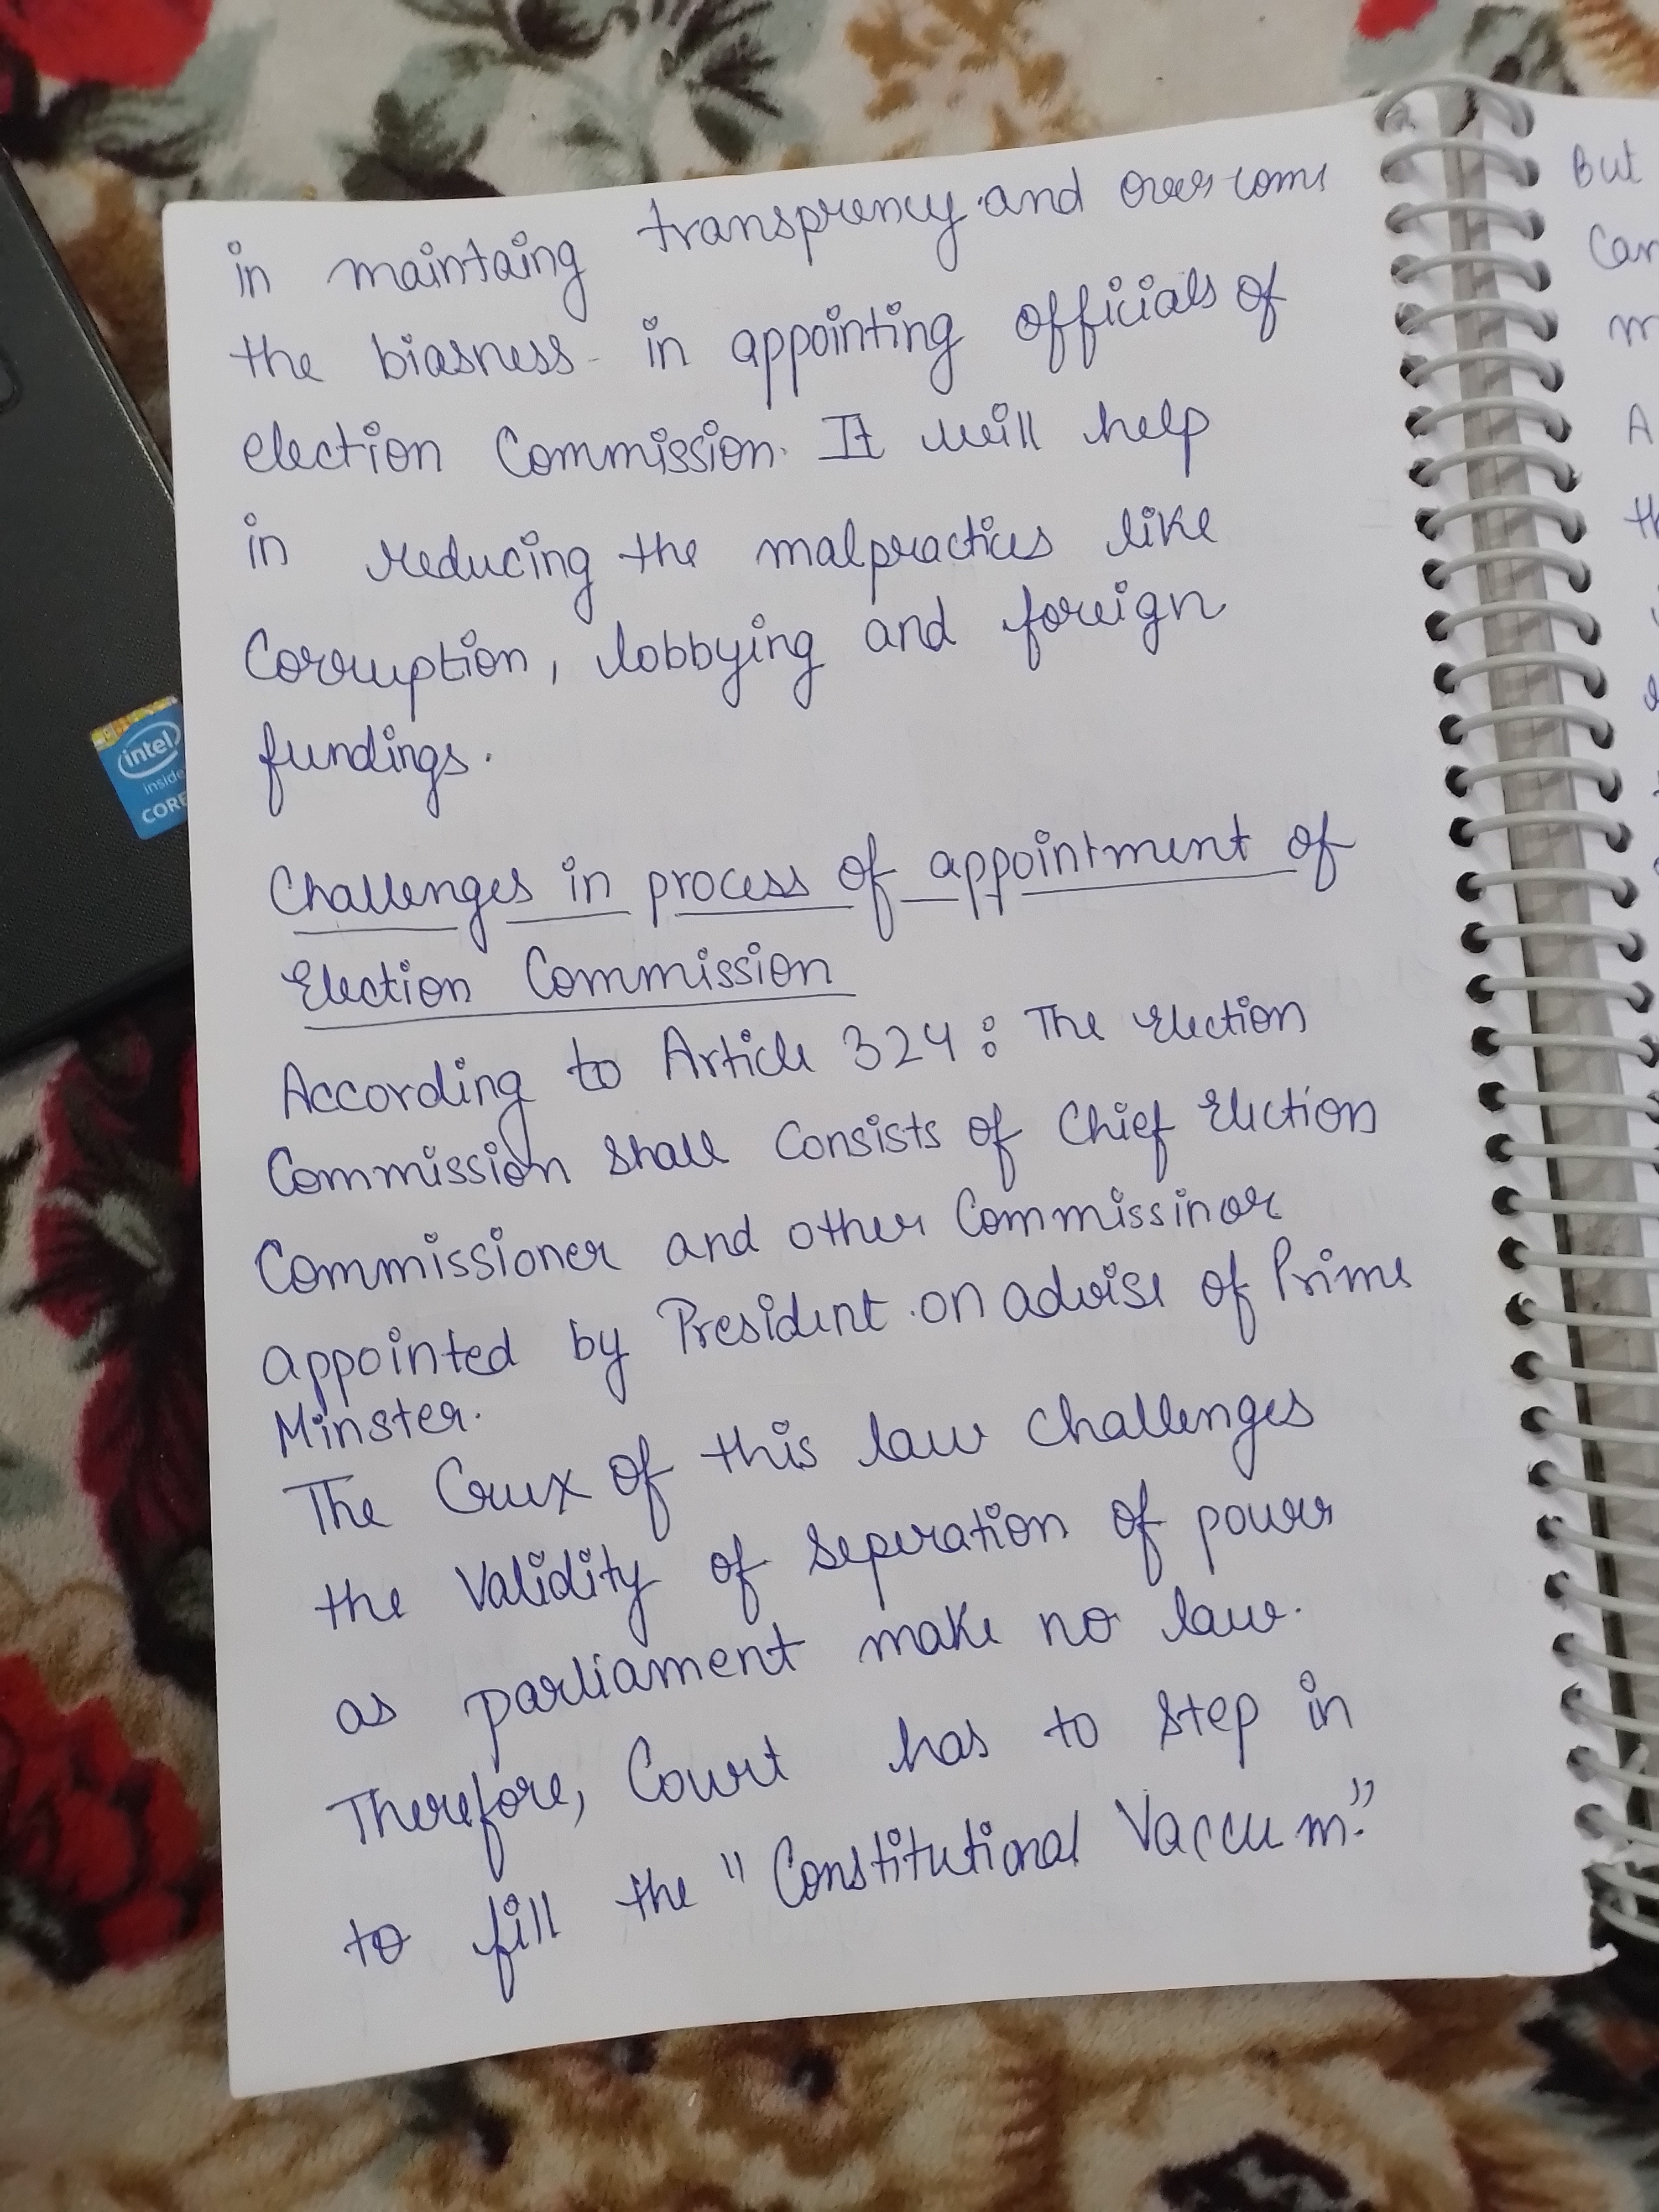 in maintaing transprency and overcome
the biasness in appointing officials of
election Commission. It will help
in reducing the malpractices like
Corruption, lobbying and foreign
fundings.
Challenges in process of appointment of
Election Commission
According to Article 324: The Election
Commission shall consists of Chief Election
Commissioner and other Commissinor
appointed by President on advise of Prime
Minster.
The Crux of this law challenges
the Validity of seperation of power
as parliament make no law.
Therefore, Court has to step in
to fill the "Constitutional Vaccum."
intel
inside
CORE
But
Can
m
A
th